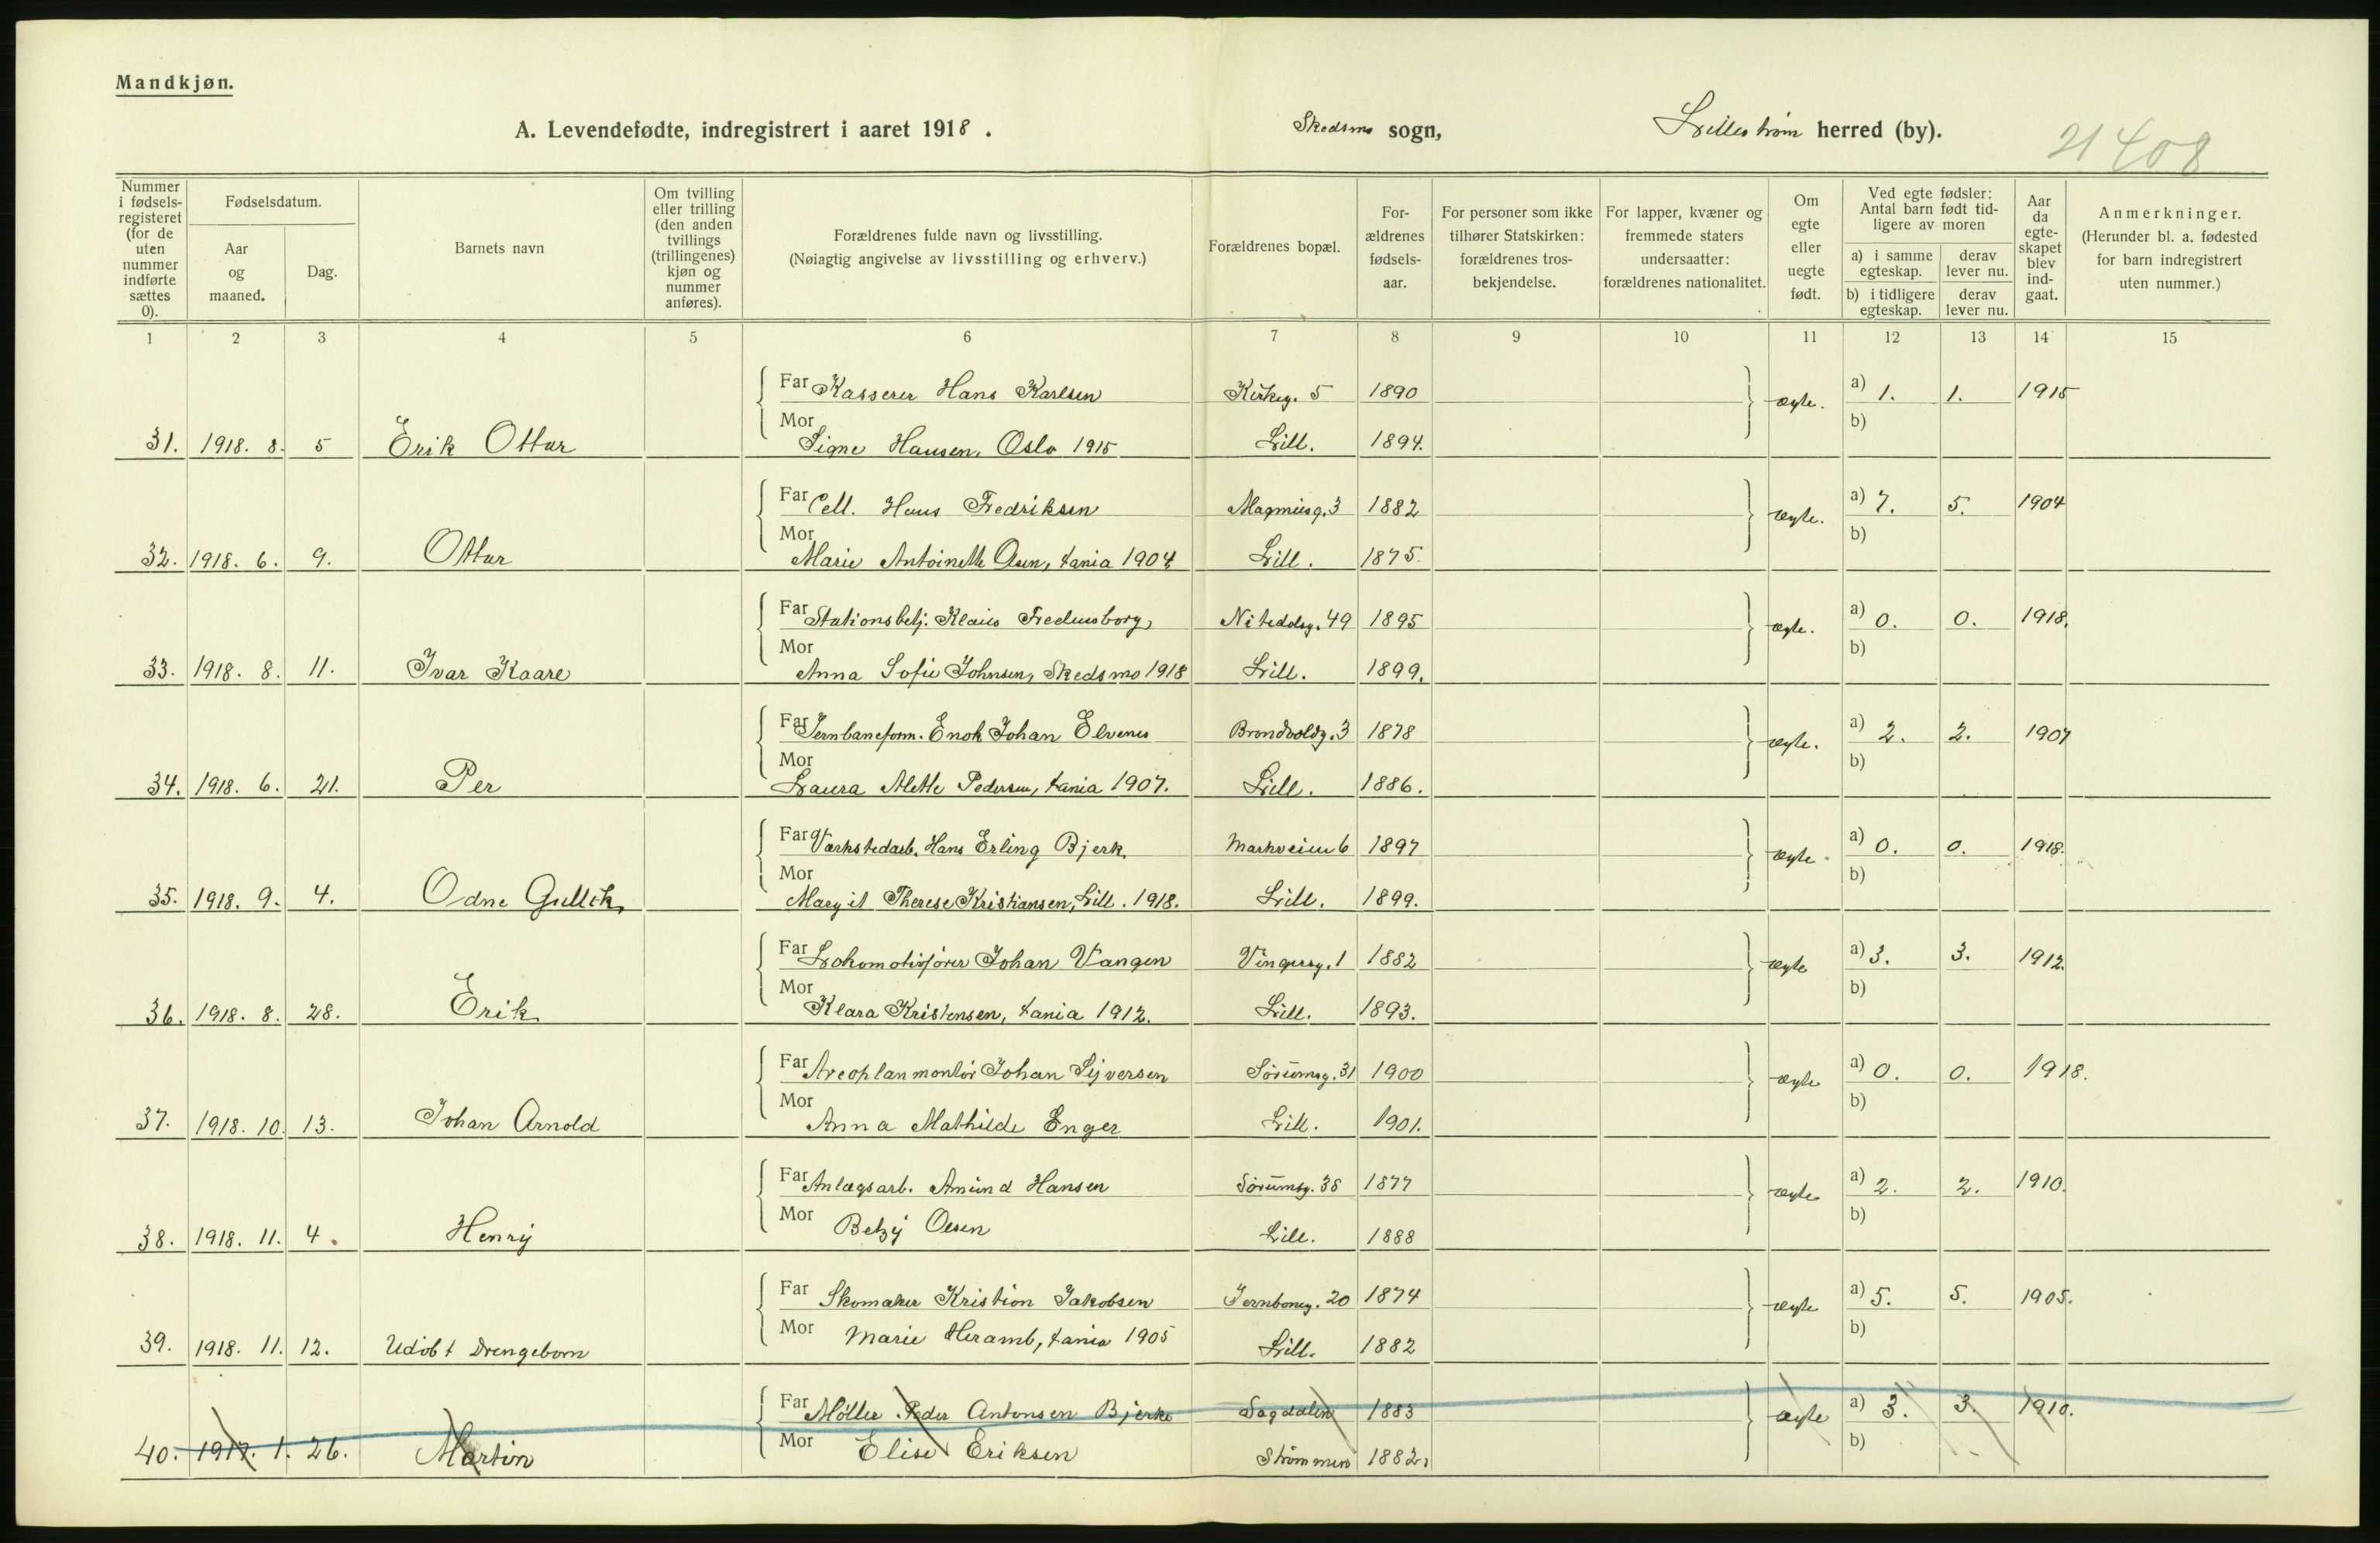 Mandkjøn.
A. Levendefødte, indregistrert i aaret 1918.
Skedsmo sogn,
Lillestrøm herred (by).
21408
Nummer i fødsels-registeret (for de uten nummer indførte sættes 0).
Fødselsdatum.
Aar og maaned.
Dag.
Barnets navn
Om tvilling eller trilling (den anden tvillings (trillingenes) kjøn og nummer anføres).
Forældrenes fulde navn og livsstilling.
(Nøiagtig angivelse av livsstilling og erhverv.)
Forældrenes bopæl.
For-ældrenes fødsels-aar.
For personer som ikke tilhører Statskirken: forældrenes tros-bekjendelse.
For lapper, kvæner og fremmede staters undersaatter: forældrenes nationalitet.
Om egte eller uegte født.
Ved egte fødsler: Antal barn født tid-ligere av moren
a) i samme egteskap.
derav lever nu.
b) i tidligere egteskap.
derav lever nu.
Aar da egte-skapet blev ind-gaat.
Anmerkninger.
(Herunder bl. a. fødested for barn indregistrert uten nummer.)
1 2 3 4 5 6 7 8 9 10 11 12 13 14 15
Far Kasserer Hans Karlsen Kirkeg. 5 1890 ægte. a) 1. 1. 1915
31. 1918. 8. 5 Erik Ottar Mor Signe Hansen, Oslo 1915 Lill. 1894. b)
Far Cell. Hans Fredriksen Magnusg. 3 1882 ægte. a) 7. 5. 1904
32. 1918. 6. 9. Ottar Mor Marie Antoinette Osen, tania 1904 Lill. 1875. b)
Far Stationsbetj. Klaus Fredensborg, Nitedalsg. 49 1895 ægte. a) 0. 0. 1918.
33. 1918. 8. 11. Ivar Kaare Mor Anna Sofie Johnsen, Skedsmo 1918 Lill. 1899. b)
Far Jernbaneform. Enok Johan Elvenes Brondvoldg. 3 1878 ægte. a) 2. 2. 1907
34. 1918. 6. 21. Per Mor Laura Alette Pedersen, tania 1907. Lill. 1886. b)
Far Værkstedarb. Hans Erling Bjerk. Markveien 6 1897 ægte. a) 0. 0. 1918.
35. 1918. 9. 4. Odne Gullik. Mor Margit Therese Kristiansen, Lill. 1918. Lill. 1899. b)
Far Lokomotivfører Johan Vangen Vingersg. 1 1882 ægte a) 3. 3. 1912.
36. 1918. 8. 28. Erik Mor Klara Kristensen, tania 1912. Lill. 1893. b)
Far Areoplanmontör Johan Syversen Sørumsg. 31 1900 ægte a) 0. 0. 1918.
37. 1918. 10. 13. Johan Arnold Mor Anna Mathilde Enger Lill. 1901. b)
Far Anlægsarb. Amund Hansen Sørumsg. 38 1877 ægte a) 2. 2. 1910.
38. 1918. 11. 4. Henry Mor Betzy Olsen Lill. 1888 b)
Far Skomaker Kristian Jakobsen Jernbaneg. 20 1874 ægte a) 5. 5. 1905.
39. 1918. 11. 12. Udöbt Drengebarn Mor Marie Heramb, tania 1905 Lill. 1882 b)
Far Möller Peder Antonsen Bjerke Sagdalen 1883 ægte a) 3. 3. 1910.
40. 1917. 1. 26. Martin Mor Elise Eriksen Strömmen 1882. b)